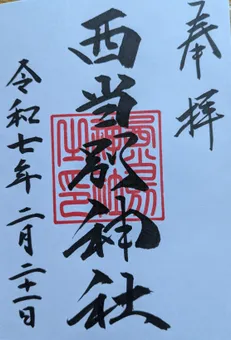 奉拝
西当別神社
令和七年二月二十一日